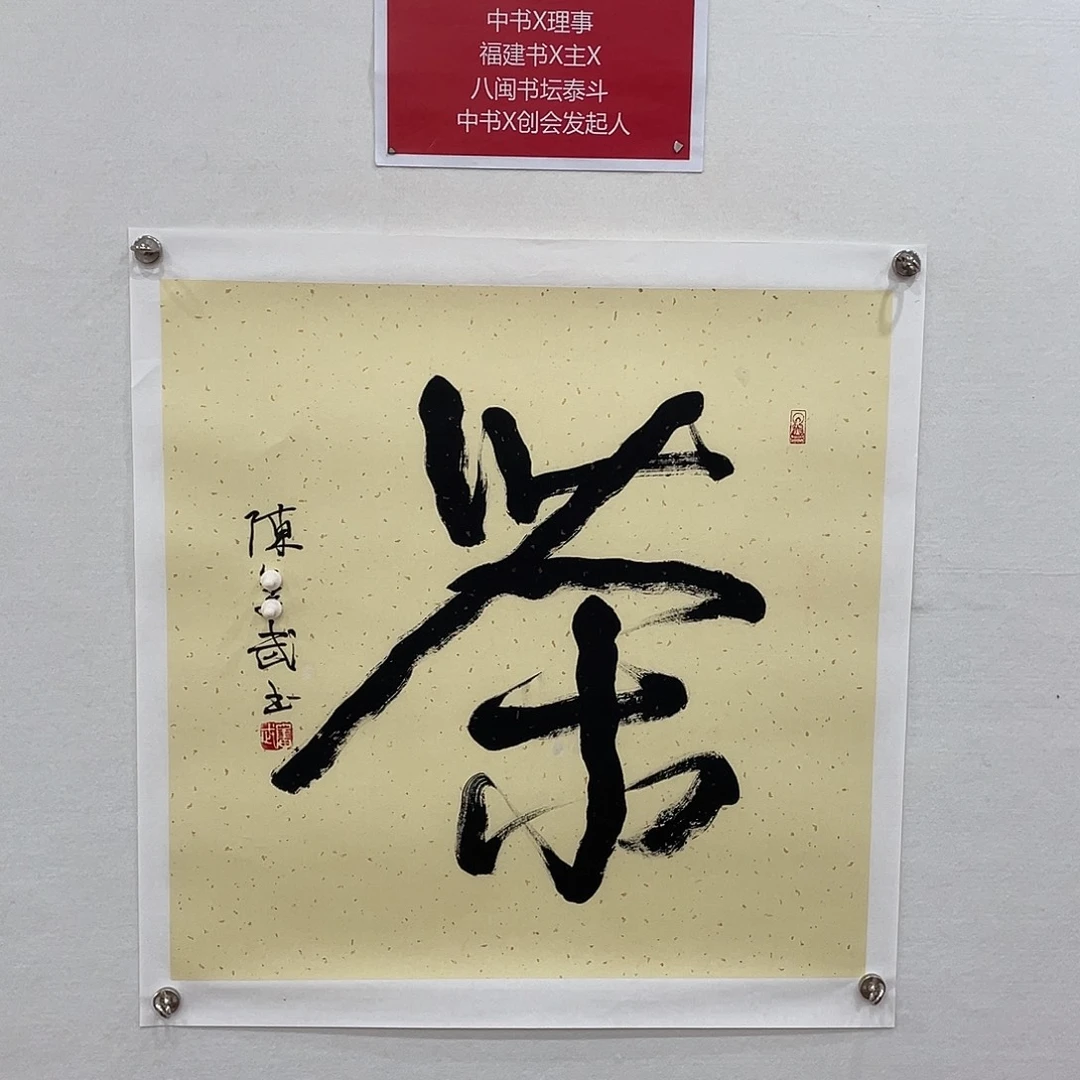 中书X理事
福建书X主X
八闽书坛泰斗
中书X创会发起人
茶
陳
武书